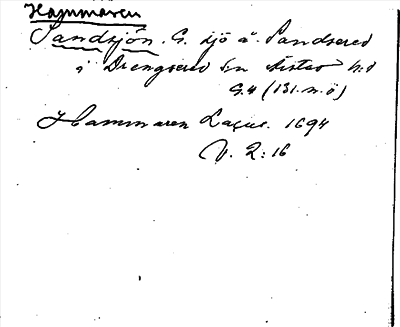 Hammaren
Sandsjön. G. sjö å Sandsered
i Drengsered sn Årstad hd
G.4 (131. m. ö)
Hammaren Lacus. 1694
V. 2:16